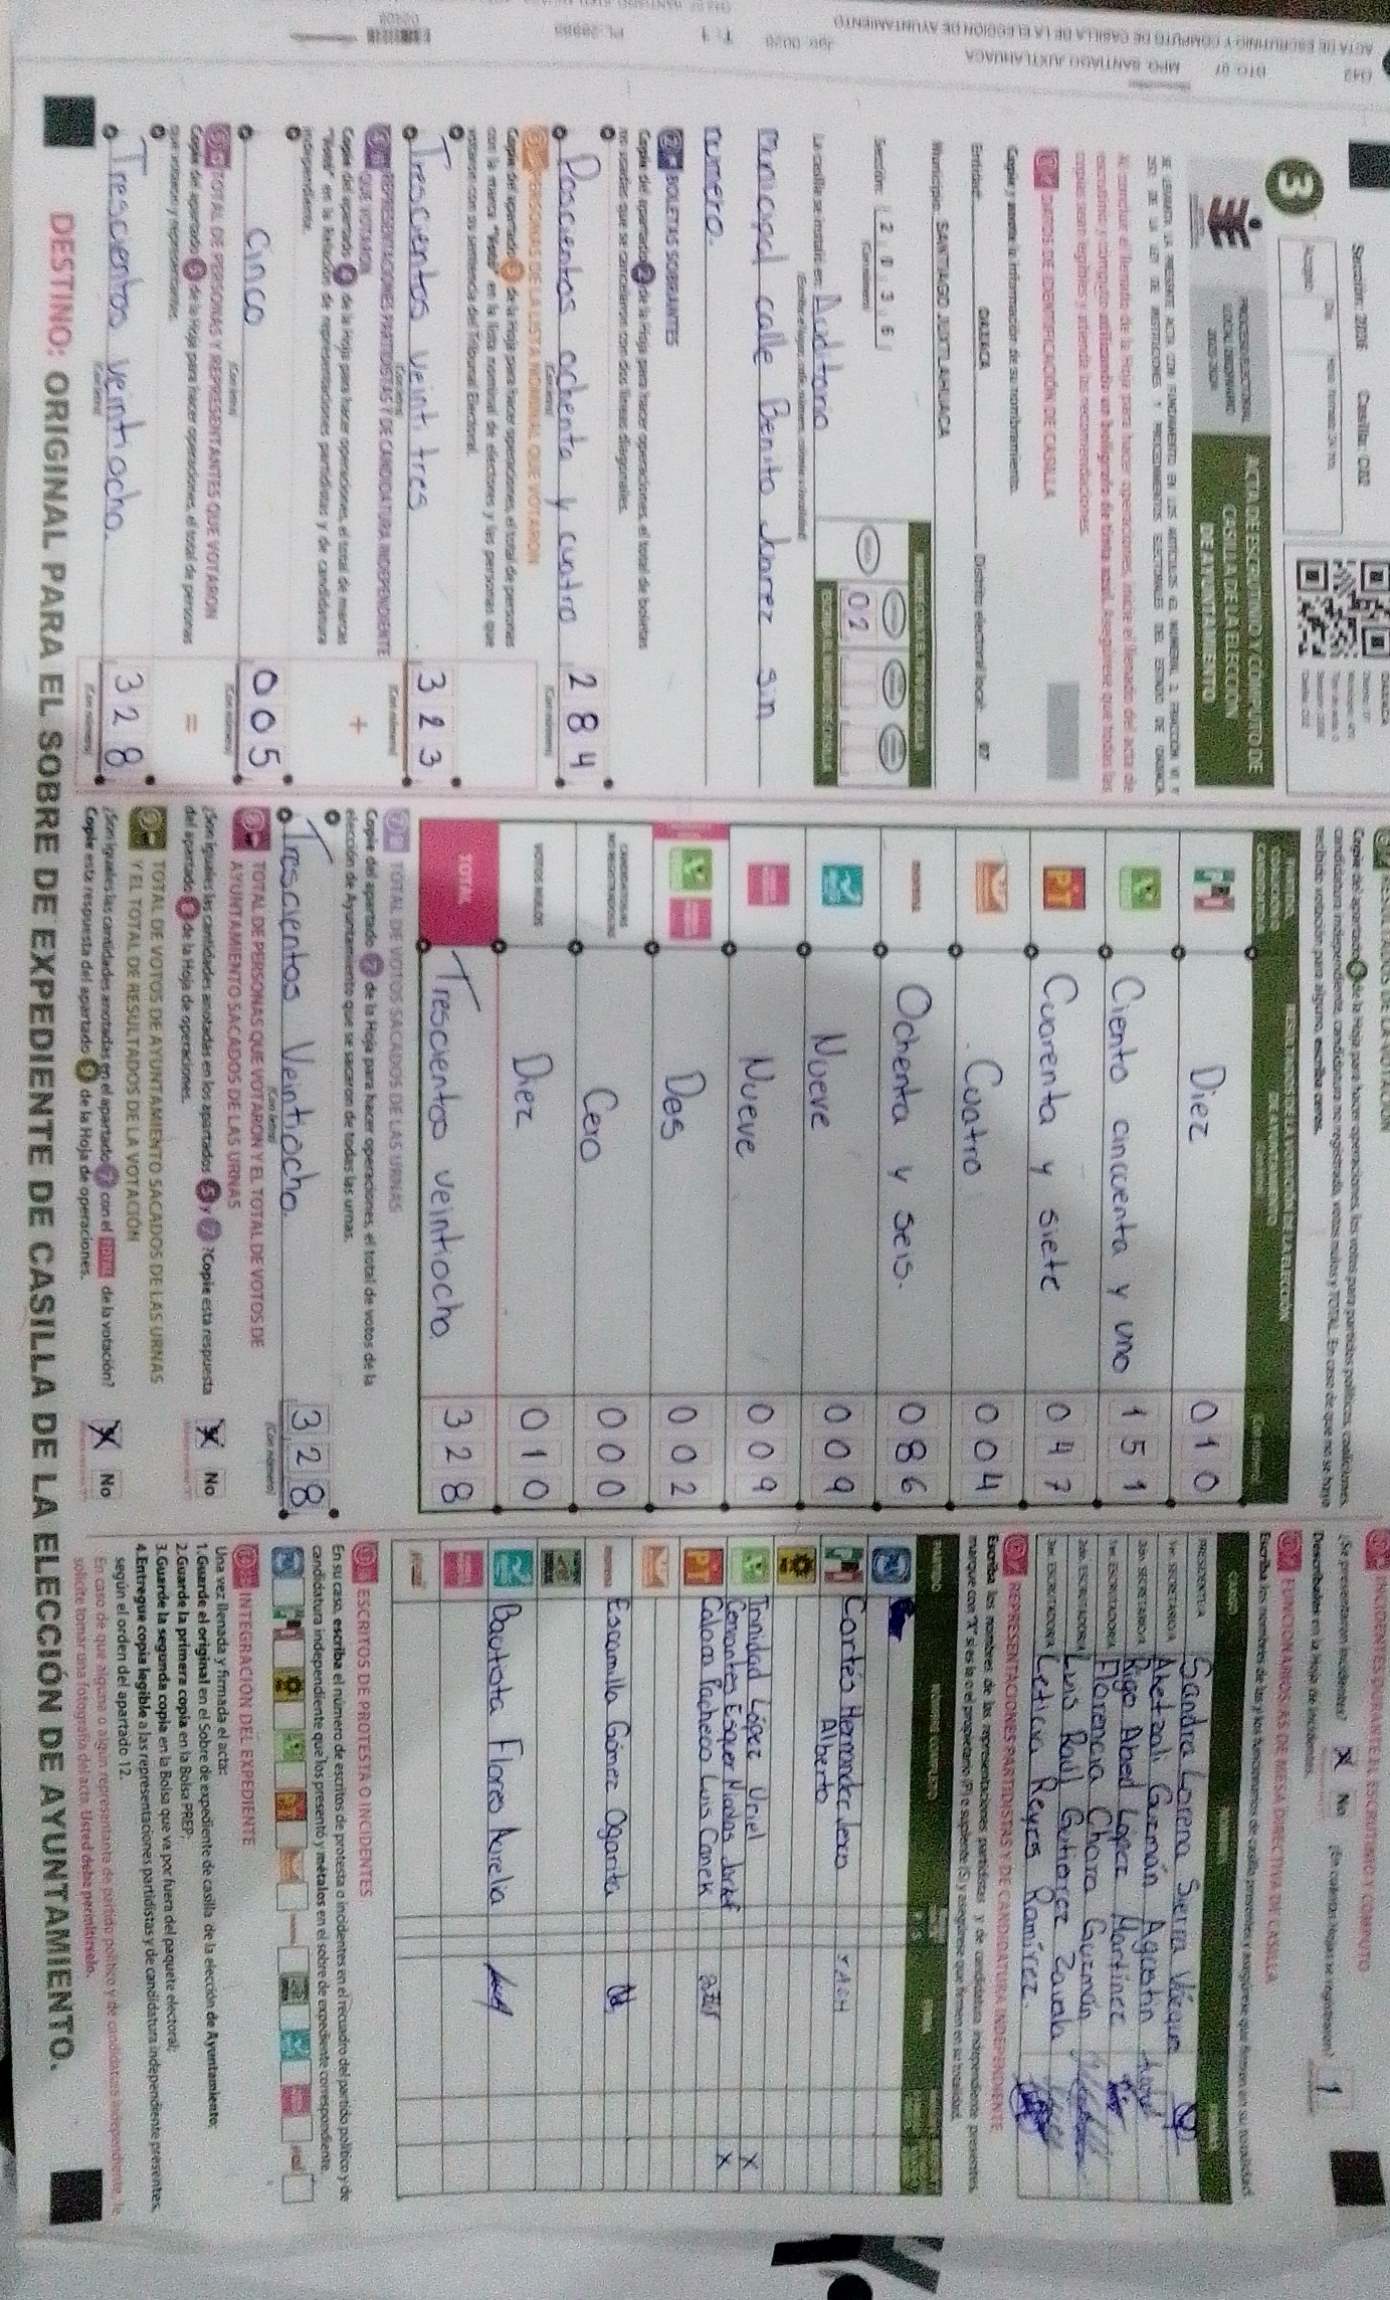 Sección: 2036 Casilla: C02
3
PROCESO ELECTORAL
LOCAL ORDINARIO
2023-2024
ACTA DE ESCRUTINIO Y CÓMPUTO DE
CASILLA DE LA ELECCIÓN
DE AYUNTAMIENTO
Al concluir el llenado de la Hoja para hacer operaciones, inicie el llenado del acta de
escrutinio y cómputo utilizando un bolígrafo de tinta azul. Asegúrese que todas las
copias sean legibles y atienda las recomendaciones.
DATOS DE IDENTIFICACIÓN DE CASILLA
Copie y anote la información de su nombramiento.
Entidad: OAXACA Distrito electoral local: 07
Municipio: SANTIAGO JUXTLAHUACA
Sección: 2 0 3 6
02
La casilla se instaló en: Auditorio
municipal calle Benito Juarez sin
numero.
2 BOLETAS SOBRANTES
Copie del apartado 2 de la Hoja para hacer operaciones, el total de boletas
no usadas que se cancelaron con dos líneas diagonales.
Doscientos ochenta y cuatro 284
PERSONAS DE LA LISTA NOMINAL QUE VOTARON
Copie del apartado 3 de la Hoja para hacer operaciones, el total de personas
con la marca "Votó" en la lista nominal de electores y las personas que
votaron con su sentencia del Tribunal Electoral.
Trescientos veinti tres 323
REPRESENTACIONES PARTIDISTAS Y DE CANDIDATURA INDEPENDIENTE
QUE VOTARON
Copie del apartado 4 de la Hoja para hacer operaciones, el total de marcas
"Votó" en la Relación de representaciones partidistas y de candidatura
independiente.
+
Cinco 005
TOTAL DE PERSONAS Y REPRESENTANTES QUE VOTARON
Copie del apartado 5 de la Hoja para hacer operaciones, el total de personas
que votaron y representantes.
=
Trescientos veintiocho. 328
RESULTADOS DE LA VOTACIÓN
Copie del apartado 6 de la Hoja para hacer operaciones, los votos para partidos políticos, coaliciones,
candidatura independiente, candidatura no registrada, votos nulos y TOTAL. En caso de que no se haya
recibido votación para alguno, escriba ceros.
Diez 010
Ciento cincuenta y uno 151
PT Cuarenta y siete 047
Cuatro 004
morena Ochenta y seis. 086
Nueve 009
Nueve 009
Dos 002
CANDIDATURAS
NO REGISTRADAS Cero 000
VOTOS NULOS Diez 010
TOTAL Trescientos veintiocho 328
7 TOTAL DE VOTOS SACADOS DE LAS URNAS
Copie del apartado 7 de la Hoja para hacer operaciones, el total de votos de la
elección de Ayuntamiento que se sacaron de todas las urnas.
Trescientos Veintiocho. 328
8 TOTAL DE PERSONAS QUE VOTARON Y EL TOTAL DE VOTOS DE
AYUNTAMIENTO SACADOS DE LAS URNAS
¿Son iguales las cantidades anotadas en los apartados 5 y 7? Copie esta respuesta
del apartado 8 de la Hoja de operaciones.
X No
9 TOTAL DE VOTOS DE AYUNTAMIENTO SACADOS DE LAS URNAS
Y EL TOTAL DE RESULTADOS DE LA VOTACIÓN
¿Son iguales las cantidades anotadas en el apartado 7 con el TOTAL de la votación?
Copie esta respuesta del apartado 9 de la Hoja de operaciones.
X No
INCIDENTES DURANTE EL ESCRUTINIO Y CÓMPUTO
¿Se presentaron incidentes? X No ¿En cuántas Hojas se registraron? 1
Descríbalos en la Hoja de incidentes.
FUNCIONARIOS/AS DE MESA DIRECTIVA DE CASILLA
PRESIDENTE/A Sandra Lorena Sierra Vásquez
1er. SECRETARIO/A Ahetzali Guzmán Agustin
2do. SECRETARIO/A Rigo Abed López Martínez
1er. ESCRUTADOR/A Florencia Chora Guzmán
2do. ESCRUTADOR/A Luis Raúl Gutierrez Zavala
3er. ESCRUTADOR/A Leticia Reyes Ramírez.
REPRESENTACIONES PARTIDISTAS Y DE CANDIDATURA INDEPENDIENTE
Escriba los nombres de las representaciones partidistas y de candidatura independiente presentes,
marque con "X" si es la o el propietario (P) o suplente (S) y asegúrese que firmen en su totalidad.
Cortés Hernandez
Alberto
Trinidad López Uriel X
X
PT Luis Canek
morena Escamilla Gómez Ogarita
Bautista Flores Aurelia
ESCRITOS DE PROTESTA O INCIDENTES
En su caso, escriba el número de escritos de protesta o incidentes en el recuadro del partido político y de
candidatura independiente que los presentó y métalos en el sobre de expediente correspondiente.
INTEGRACIÓN DEL EXPEDIENTE
Una vez llenada y firmada el acta:
1.Guarde el original en el Sobre de expediente de casilla de la elección de Ayuntamiento;
2.Guarde la primera copia en la Bolsa PREP;
3.Guarde la segunda copia en la Bolsa que va por fuera del paquete electoral;
4.Entregue copia legible a las representaciones partidistas y de candidatura independiente presentes,
según el orden del apartado 12.
En caso de que alguna o algún representante de partido político y de candidatura independiente, le
solicite tomar una fotografía del acta. Usted debe permitírselo.
DESTINO: ORIGINAL PARA EL SOBRE DE EXPEDIENTE DE CASILLA DE LA ELECCIÓN DE AYUNTAMIENTO.